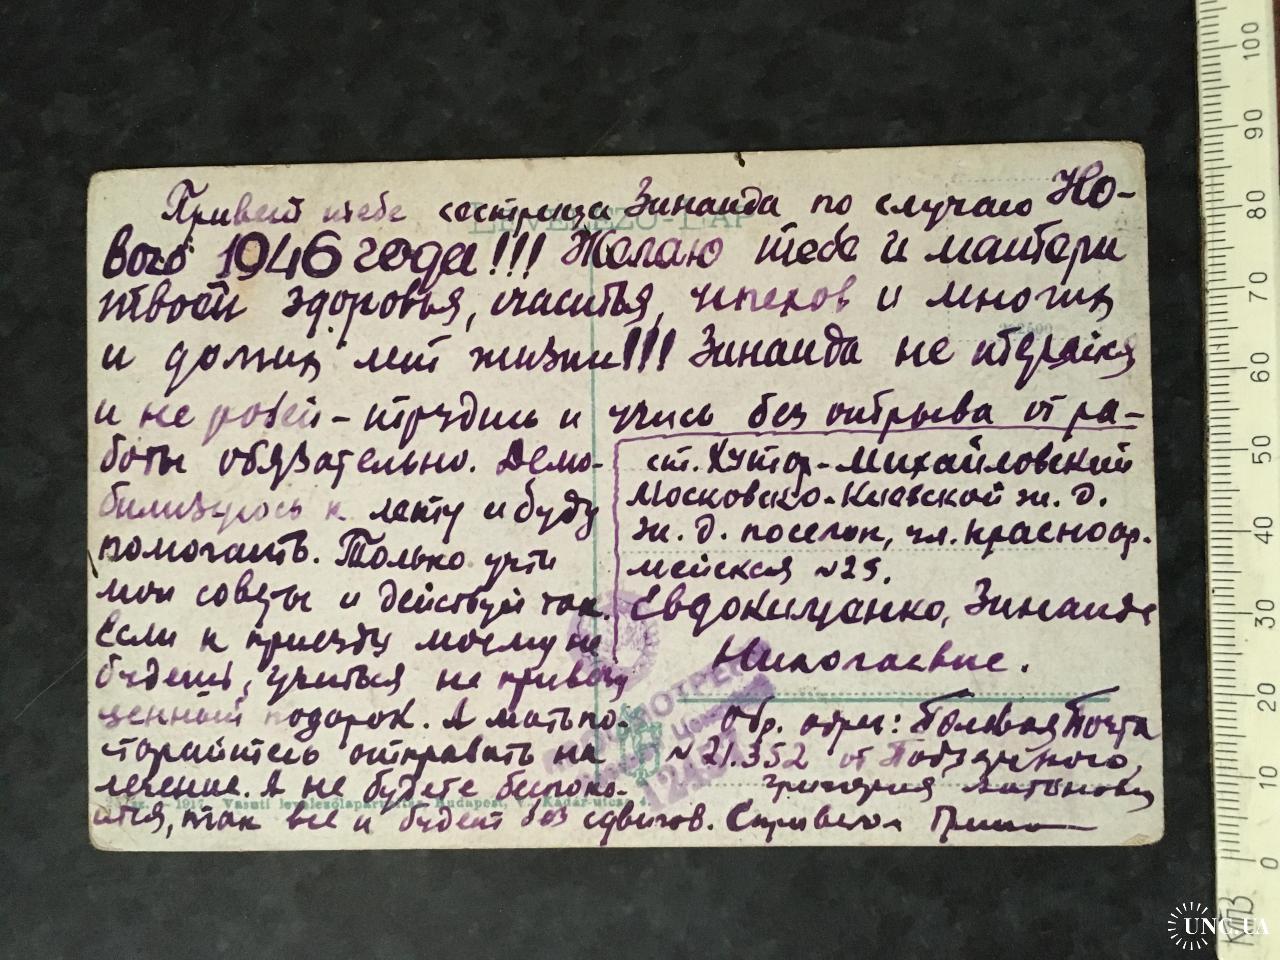 Привет тебе сестрица Зинаида по случаю Но-
вого 1946 года!!! Желаю тебе и матери
твоей здоровья, счастья, успехов и многих
и долгих лет жизни!!! Зинаида не теряйся
и не робей - трудись и учись без отрыва от ра-
боты обязательно. Демо-
билизуюсь к лету и буду
помогать. Только учти
мои советы и действуй так.
Если к приезду моему не
будешь учиться не привезу
ценный подарок. А мать по-
старайтесь отправить на
лечение. А не будете беспоко-
иться, так все и будет без сдвигов. С приветом Гриша
ст. Хутор-Михайловский
Московско-Киевской ж. д.
ж. д. поселок, ул. Красноар-
мейская №29.
Евдокименко, Зинаиде
Николаевне.
Обр. адрес: Полевая Почта
№ 21.352 от
Григория
LEVELEZŐ-LAP
1917. Vasuti levelezőlapárusítás Budapest, V., Kádár-utca 4.
100 90 80 70 60 50 40 30 20 10 0
UNC.UA